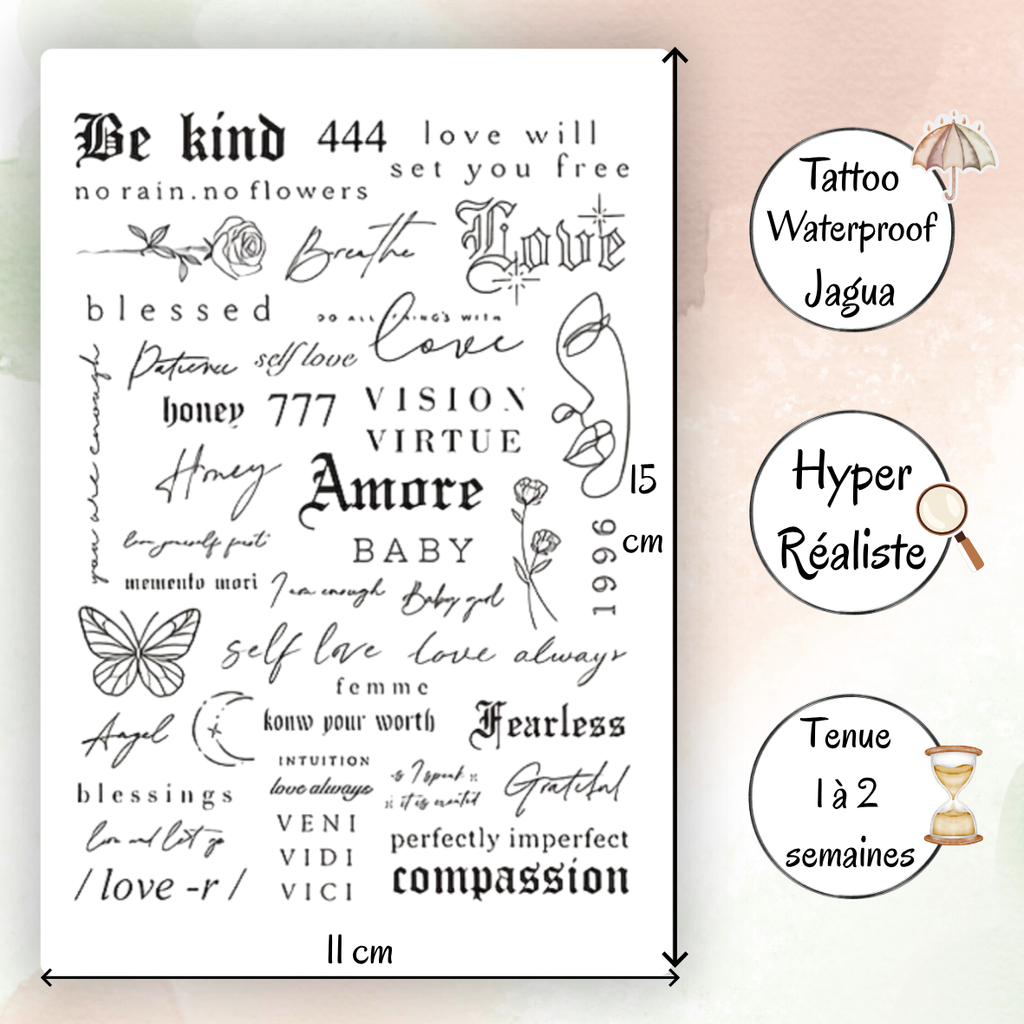 Be kind
444
love will
set you free
no rain.no flowers
Breathe
Love
blessed
DO ALL
WITH
love
Patience
self love
you are enough
honey
777
VISION
VIRTUE
Honey
Amore
15
cm
love yourself first
BABY
1996
memento mori
I am enough
Baby girl
self love
love always
femme
Angel
konw your worth
Fearless
INTUITION
love always
as I speak
it is created
Grateful
blessings
VENI
VIDI
VICI
live and let go
perfectly imperfect
/ love -r /
compassion
11 cm
Tattoo
Waterproof
Jagua
Hyper
Réaliste
Tenue
1 à 2
semaines